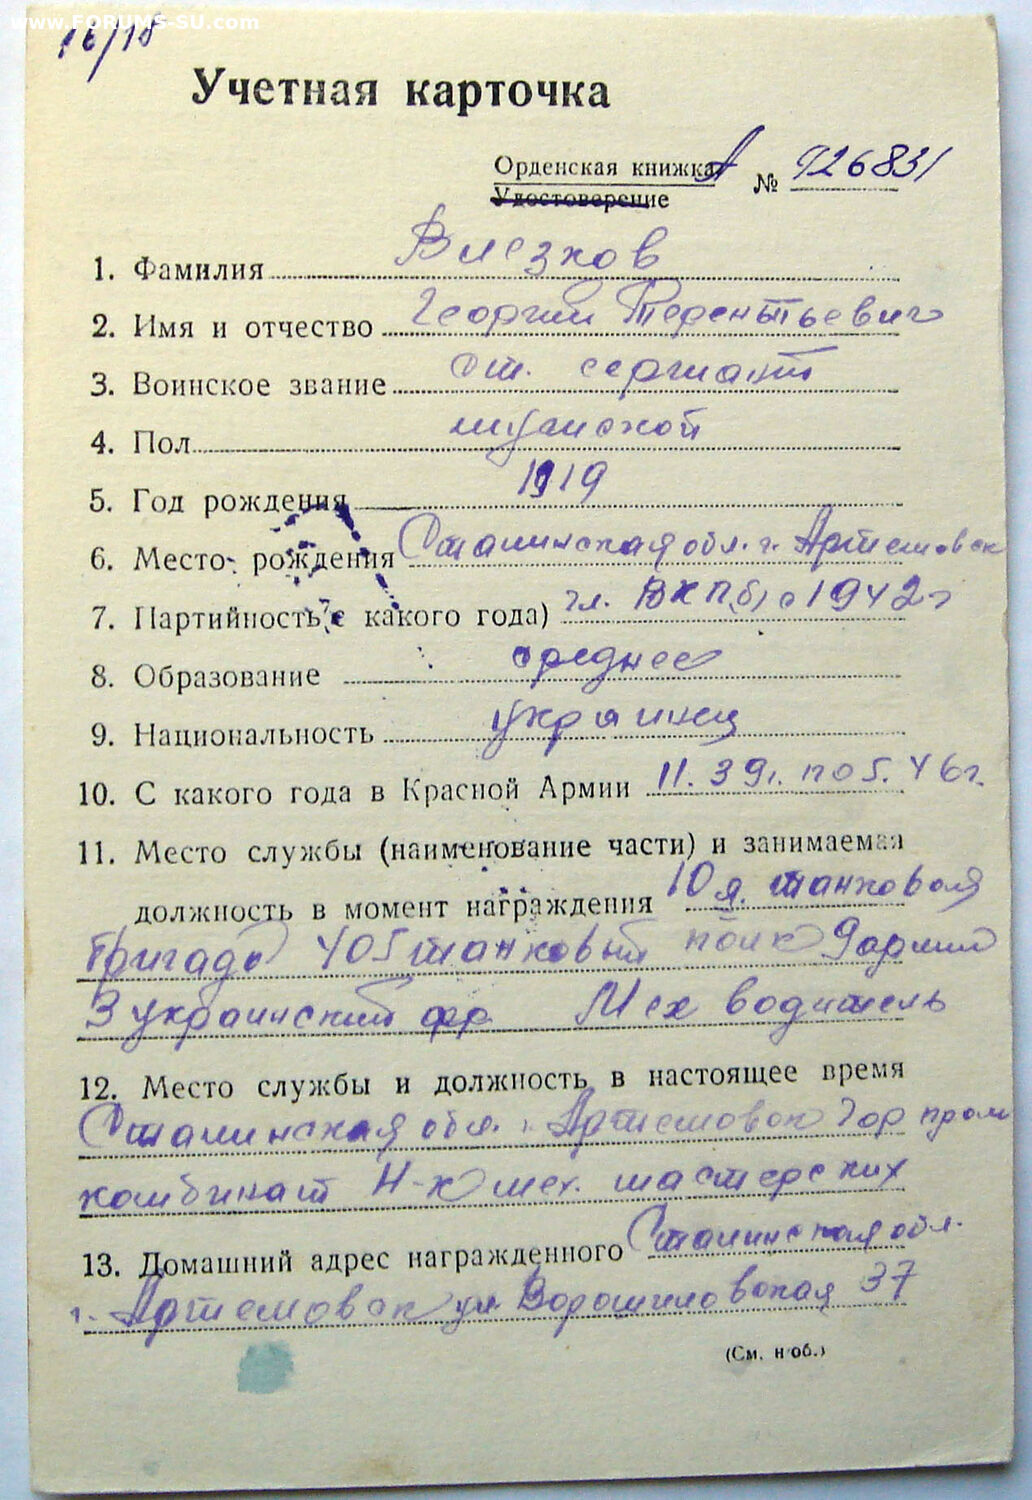 www.FORUMS-SU.com
16/18
Учетная карточка
Орденская книжка А № 926831
Удостоверение
1. Фамилия
2. Имя и отчество Георгий Терентьевич
3. Воинское звание ст. сержант
4. Пол мужской
5. Год рождения 1919
6. Место рождения Сталинская обл. г. Артемовск
7. Партийность, с какого года) чл. ВКП(б) с 1942 г
8. Образование среднее
9. Национальность украинец
10. С какого года в Красной Армии 11. 39 г. по 5. 46 г.
11. Место службы (наименование части) и занимаемая
должность в момент награждения 10 я. танковая
бригада 405 танковый полк 9 армии
3 украинский фр Мех водитель
12. Место службы и должность в настоящее время
Сталинская обл. г. Артемовск Гор пром
комбинат Н-к мех. мастерских
13. Домашний адрес награжденного Сталинская обл.
г. Артемовск ул. Ворошиловская 37
(См. н об.)